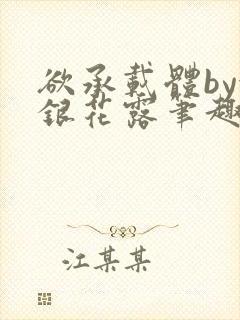 欲承載體by
銀花露筆趣
江某某